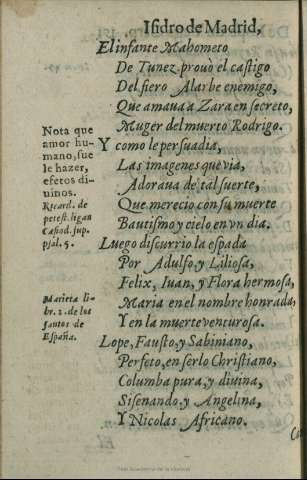 Isidro de Madrid,
El infante Mahometo
De Tunez provò el castigo
Del fiero Alarbe enemigo,
Que amaua a Zara en secreto,
Muger del muerto Rodrigo.
Y como le persuadia,
Las imagenes que via,
Adoraua de tal suerte,
Que merecio con su muerte
Bautismo y cielo en vn dia.
Luego discurrio la espada
Por Adulfo, y Liliosa,
Felix, Iuan, y Flora hermosa,
Maria en el nombre honrada,
Y en la muerte venturosa.
Lope, Fausto, y Sabiniano,
Perfeto, en serlo Christiano,
Columba pura, y diuina,
Sisenando, y Angelina,
Y Nicolas Africano.
Nota que
amor hu-
mano, sue
le hazer,
efetos di-
uinos.
Ricard. de
potest. ligan
Casiod. sup.
psal. 5.
Marieta li-
br. 2. de los
santos de
España.